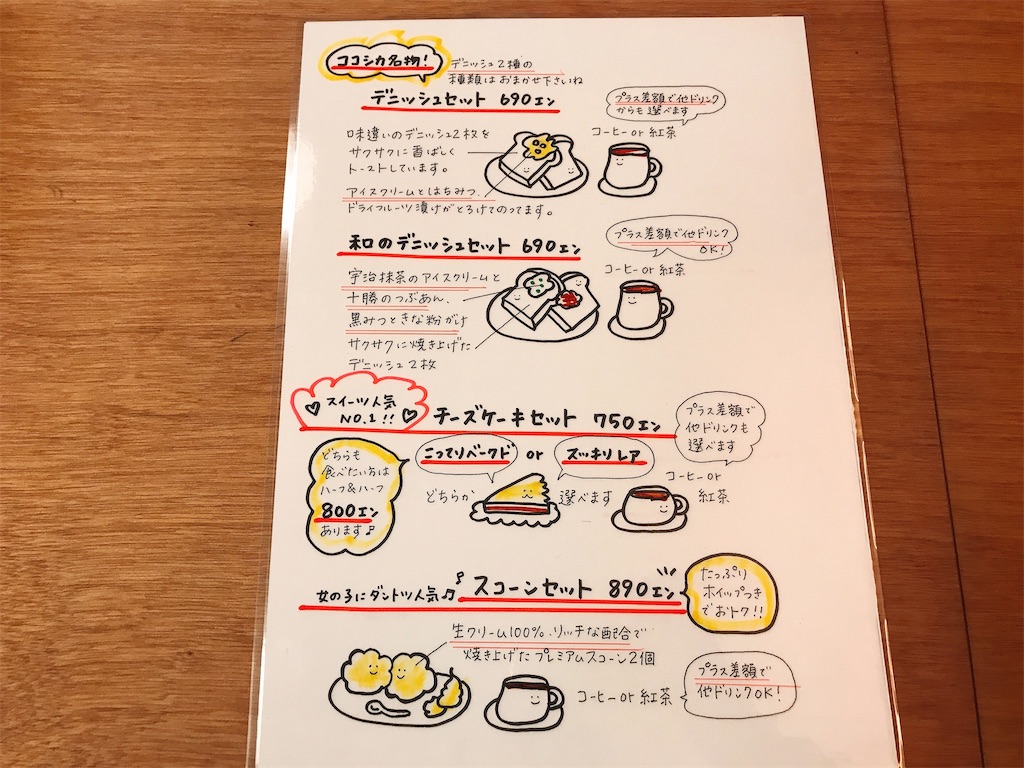 ココシカ名物!
デニッシュ2種の
種類はおまかせ下さいね
デニッシュセット 690エン
プラス差額で他ドリンク
からも選べます
コーヒー or 紅茶
味違いのデニッシュ2枚を
サクサクに香ばしく
トーストしています。
アイスクリームとはちみつ、
ドライフルーツ漬けがとろけてのってます。
和のデニッシュセット 690エン
プラス差額で他ドリンク
OK!
コーヒー or 紅茶
宇治抹茶のアイスクリームと
十勝のつぶあん、
黒みつときな粉がけ
サクサクに焼き上げた
デニッシュ2枚
スイーツ人気
NO.1!!
チーズケーキセット 750エン
プラス差額で
他ドリンクも
選べます
どちらも
食べたい方は
ハーフ&ハーフ
800エン
あります♪
こってりベークド or スッキリレア
どちらか 選べます
コーヒー or
紅茶
女の子にダントツ人気♫ スコーンセット 890エン
たっぷり
ホイップつき
でおトク!!
生クリーム100%、リッチな配合で
焼き上げたプレミアムスコーン2個
コーヒー or 紅茶
プラス差額で
他ドリンクOK!